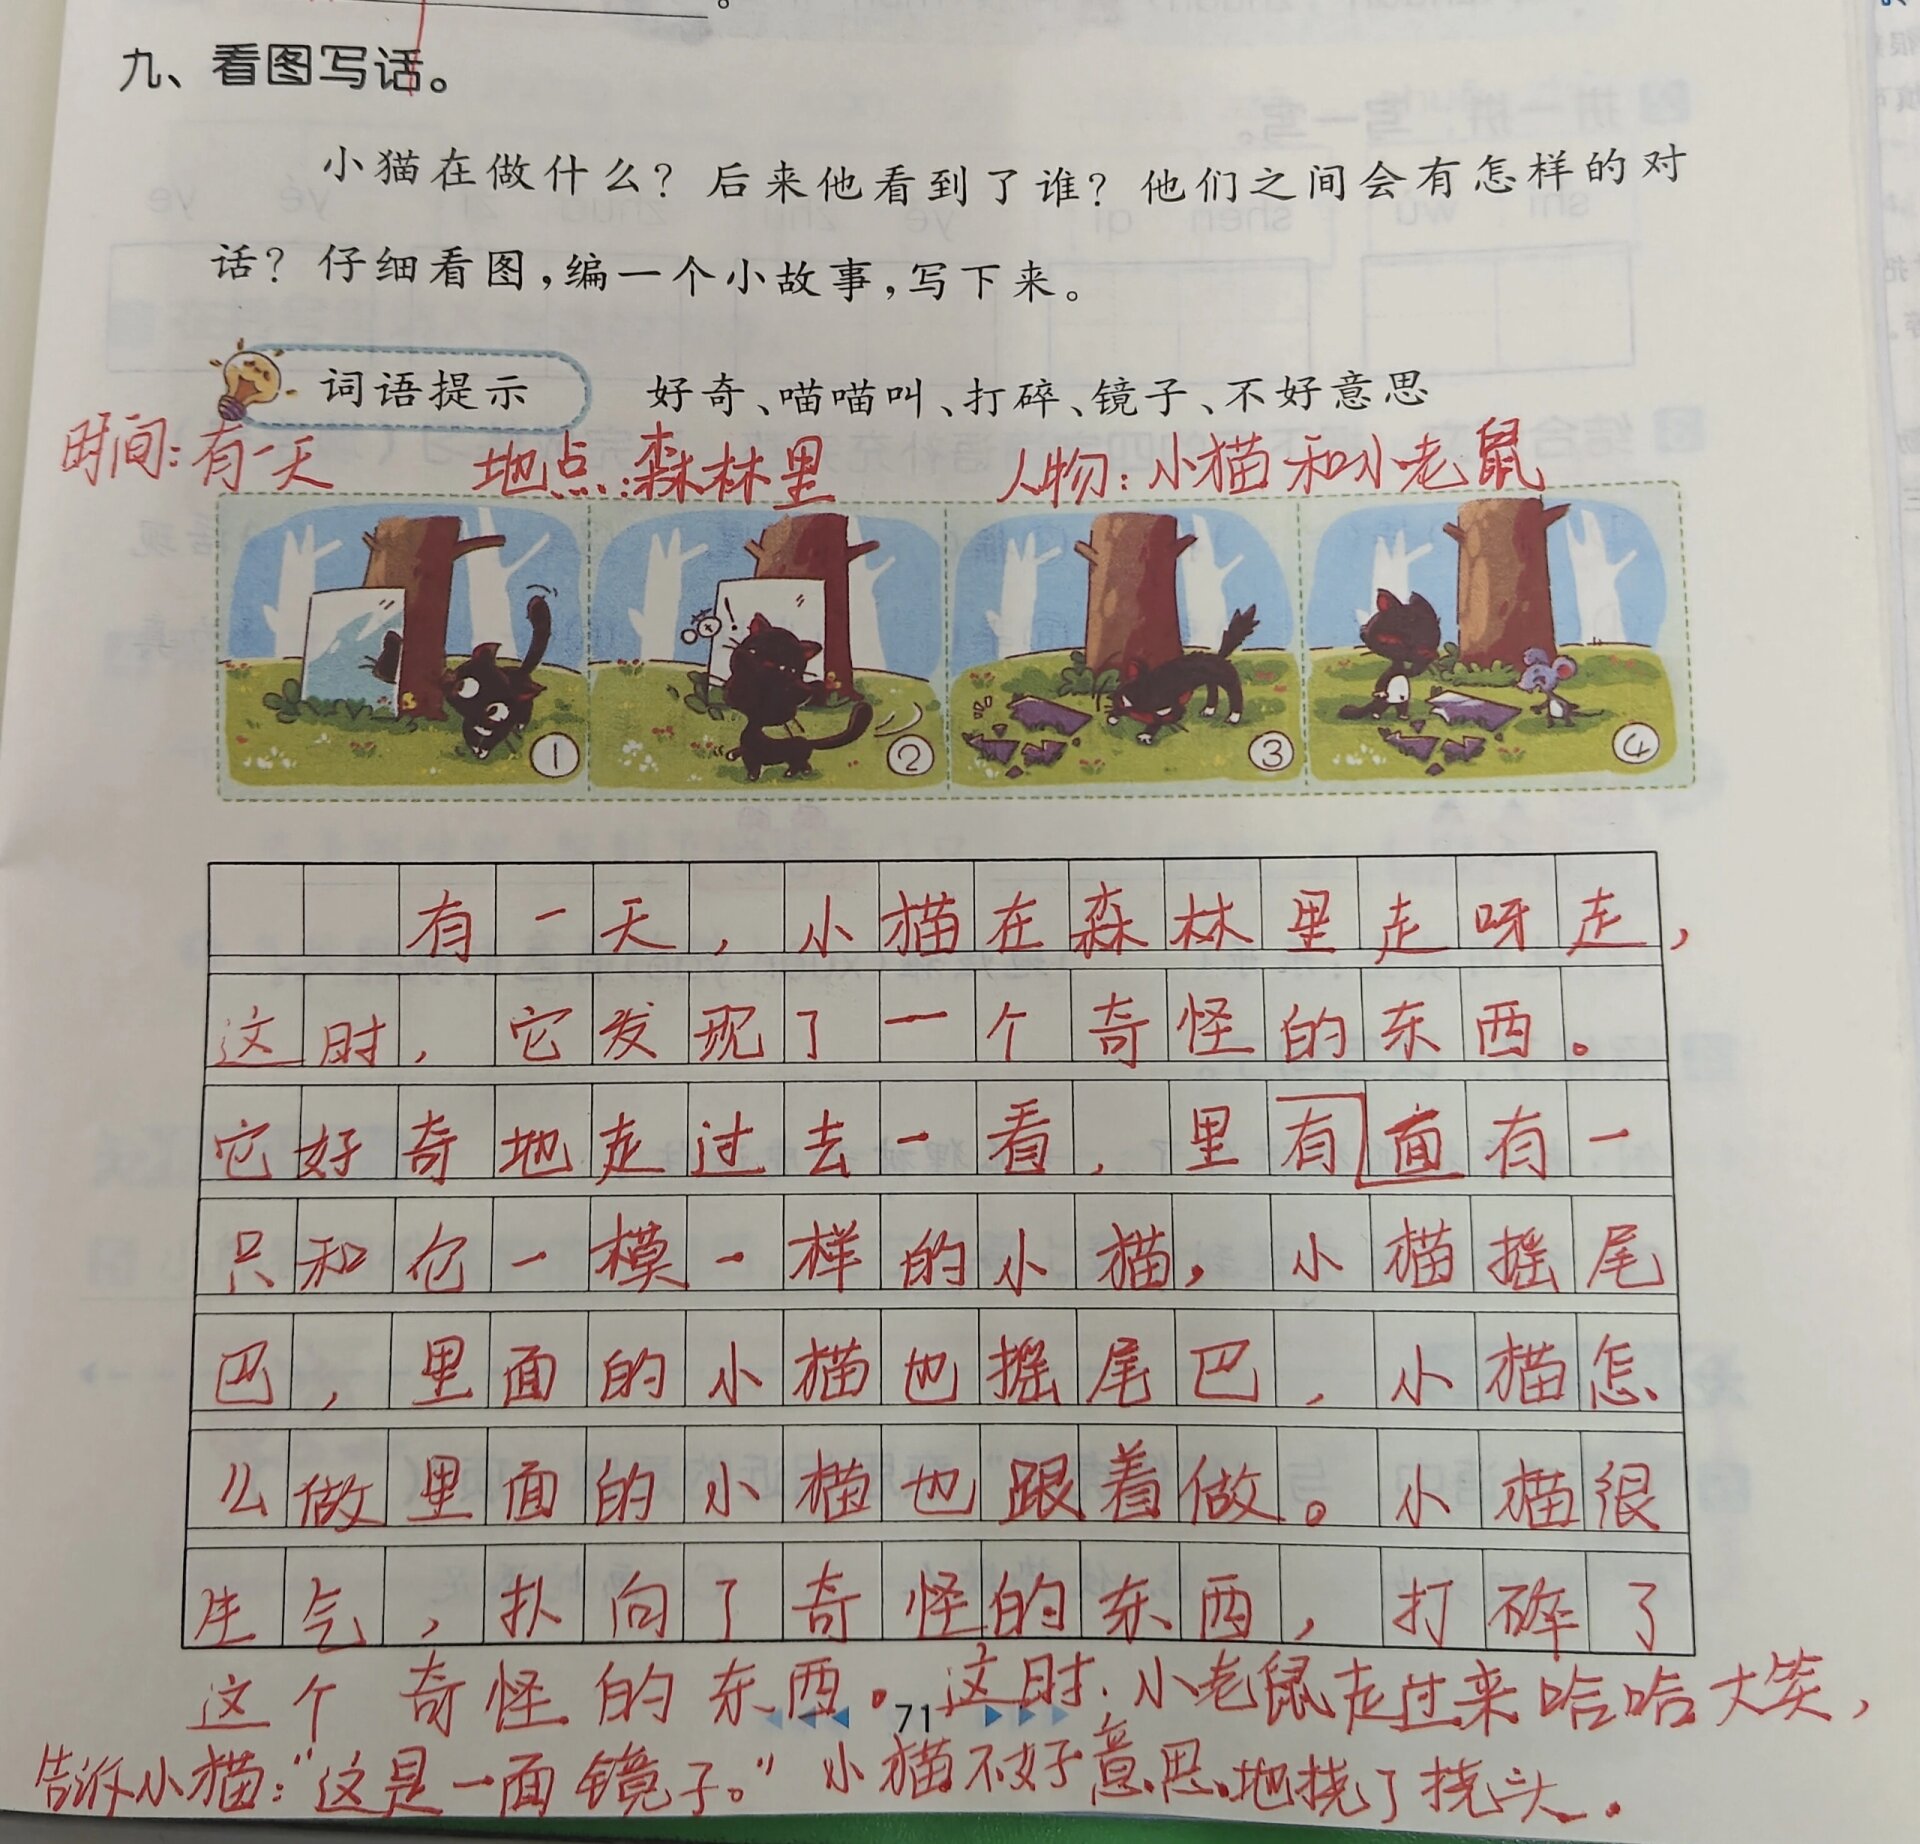 九、看图写话。
小猫在做什么？后来他看到了谁？他们之间会有怎样的对
话？仔细看图,编一个小故事,写下来。
词语提示 好奇、喵喵叫、打碎、镜子、不好意思
时间:有一天 地点:森林里 人物:小猫和小老鼠
!
1 2 3 4
有一天,小猫在森林里走呀走,
这时,它发现了一个奇怪的东西。
它好奇地走过去一看,里有面有一
只和它一模一样的小猫,小猫摇尾
巴,里面的小猫也摇尾巴,小猫怎
么做里面的小猫也跟着做。小猫很
生气,扑向了奇怪的东西,打碎了
这个奇怪的东西。这时,小老鼠走过来哈哈大笑,
71
告诉小猫:"这是一面镜子。"小猫不好意思地挠了挠头.